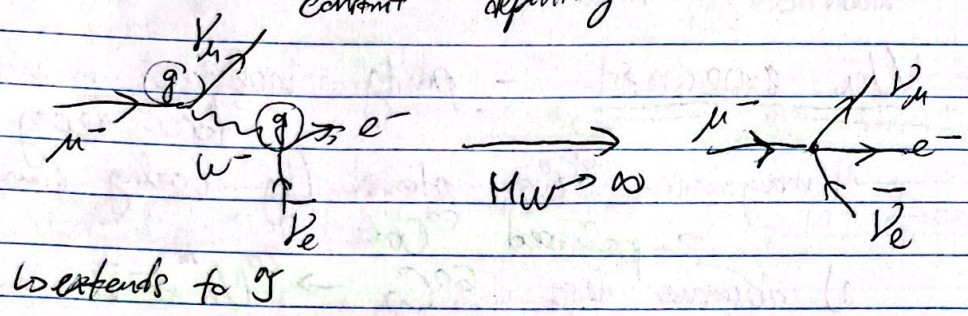 constant defining
ν_μ
g g e⁻
μ⁻ W⁻
ν̄_e
M_W → ∞
μ⁻ ν_μ e⁻
ν̄_e
↳ extends to g